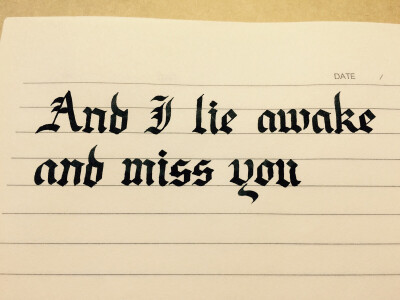 DATE /
And I lie awake
and miss you